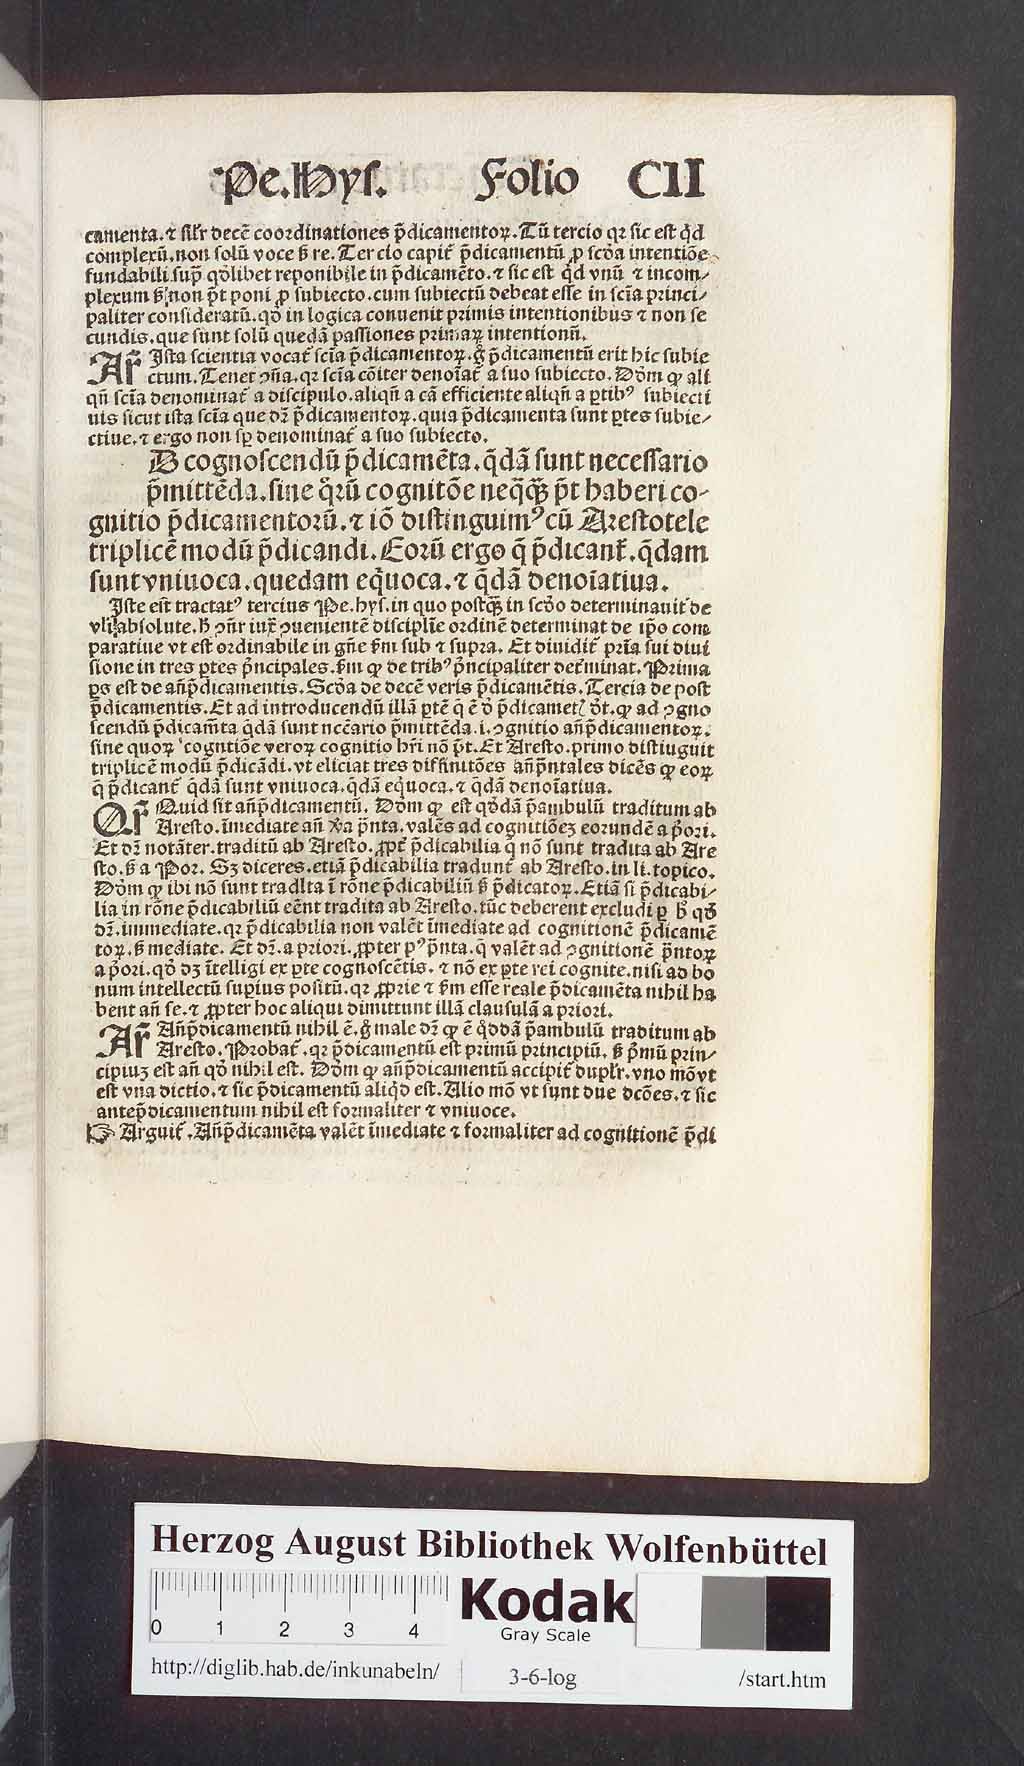 Pe.Hys. Folio CII
camenta.⁊ sil̓r decē coordinationes p̄dicamentoꝝ.Tū tercio qꝛ sic est q̄d
complexū.non solū voce ß re.Tercio capit̄ p̄dicamentū ꝓ scḋa intentiōe
fundabili.sup̄ qḋlibet reponibile in p̄dicamēto.⁊ sic est q̄d vnū ⁊ incom⸗
plexum ß non p̄t poni ꝓ subiecto.cum subiectū debeat esse in sciā princi⸗
paliter consideratū.qḋ in logica conuenit primis intentionibus ⁊ non se
cundis.que sunt solū quedā passiones primaꝝ intentionū.
Ar̄ Ista scientia vocat̄ sciā p̄dicamentoꝝ.g̊ p̄dicamentū erit hic subie
ctum.Tenet ꝯña.qꝛ sciā cōiter denoīat̄ a suo subiecto.Dōm ꝙ ali
qñ sciā denominat̄ a discipulo.aliqñ a cā efficiente aliqñ a ꝑtibꝰ subiecti
uis sicut ista sciā que dꝛ̄ p̄dicamentoꝝ.quia p̄dicamenta sunt ꝑtes subie⸗
ctiue.⁊ ergo non sꝑ denominat̄ a suo subiecto.
AD cognoscendū p̄dicamēta.q̄dā sunt necessario
p̄mittēda.sine q̊rū cognitōe neq̄qꝙ̄ p̄t haberi co⸗
gnitio p̄dicamentorū.⁊ iō distinguimꝰ cū Arestotele
triplicē modū p̄dicandi.Eorū ergo q̄ p̄dicant̄.q̄dam
sunt vniuoca.quedam eq̄uoca.⁊ q̄dā denoīatiua.
Iste est tractatꝰ tercius Pe.hys.in quo postꝙ̄ in scḋo determinauit de
vl̓i absolute.ꝧ ꝯñr iuxͭ ꝯuenientē disciplīe ordinē determinat de ip̄o com
paratiue vt est ordinabile in gñe ẜm sub ⁊ supra.Et diuidit̄ pria sui diui
sione in tres ꝑtes p̄ncipales.ẜm ꝙ de tribꝰ p̄ncipaliter det̄minat.Prima
ꝑs est de añp̄dicamentis.Scḋa de decē veris p̄dicamētis.Tercia de post
p̄dicamentis.Et ad introducendū illā ꝑtē q̄ ē ꝺ̊ p̄dicamet̄ ꝺ̊t.ꝙ ad ꝯgno
scendū p̄dicam̄ta q̄dā sunt nccēario p̄mittēda.i.ꝯgnitio añp̄dicamentoꝝ.
sine quoꝝ cogntiōe veroꝝ cognitio hr̄i nō p̄t.Et Aresto.primo distiuguit
triplicē modū p̄dicādi.vt eliciat tres diffinitōes añp̄ntales dicēs ꝙ eoꝝ
q̄ p̄dicant̄ q̄dā sunt vniuoca.q̄dā eq̄uoca.⁊ q̄dā denoīatiua.
Qr̄ Quid sit añp̄dicamentū. Dōm ꝙ est qḋdā p̄ambulū traditum ab
Aresto.īmediate añ v̊a p̄nta.valēs ad cognitiōeꝫ eorundē a p̊ori.
Et dꝛ̄ notāter.traditū ab Aresto.ꝓpt̄ p̄dicabilia q̄ nō sunt tradita ab Are
sto.ß a Por. Sꝫ diceres.etiā p̄dicabilia tradunt̄ ab Aresto.in li.topico.
Dōm ꝙ ibi nō sunt tradlta ī rōne p̄dicabiliū ß p̄dicatoꝝ.Etiā si p̄dicabi⸗
lia in rōne p̄dicabiliū eēnt tradita ab Aresto.tūc deberent excludi ꝑ ꝧ qḋ
dꝛ̄.immediate.qꝛ p̄dicabilia non valēt īmediate ad cognitionē p̄dicamē
toꝝ.ß mediate. Et dꝛ̄.a priori.ꝓpter pꝰp̄nta.q̄ valēt ad ꝯgnitionē p̄ntoꝝ
a p̊ori.qḋ dꝫ ītelligi ex ꝑte cognoscētis.⁊ nō ex ꝑte rei cognite.nisi ad bo
num intellectū suꝑius positū.qꝛ ꝓprie ⁊ ẜm esse reale p̄dicamēta nihil ha
bent añ se.⁊ ꝓpter hoc aliqui dimittunt illā clausulā a priori.
Ar̄ Añp̄dicamentū nihil ē.g̊ male dꝛ̄ ꝙ ē q̊ddā p̄ambulū traditum ab
Aresto.Probat̄.qꝛ p̄dicamentū est primū principiū.ß p̊mū prin⸗
cipiuꝫ est añ qḋ nihil est. Dōm ꝙ añp̄dicamentū accipit̄ dupl̓r.vno mō vt
est vna dictio.⁊ sic p̄dicamentū aliq̊d est.Alio mō vt sunt due dcōes.⁊ sic
antep̄dicamentum nihil est formaliter ⁊ vniuoce.
☞ Arguit̄.Añp̄dicamēta valēt īmediate ⁊ formaliter ad cognitionē p̄di
Herzog August Bibliothek Wolfenbüttel
0 1 2 3 4
Kodak
Gray Scale
http://diglib.hab.de/inkunabeln/ 3-6-log /start.htm